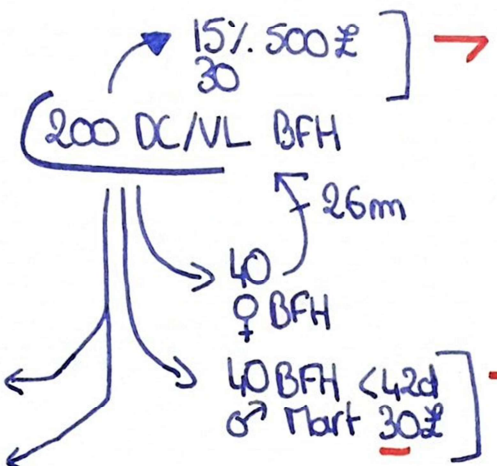 15% 500£
30
200 DC/VL BFH
26m
40
♀ BFH
40 BFH <42d
♂ Mart 30£